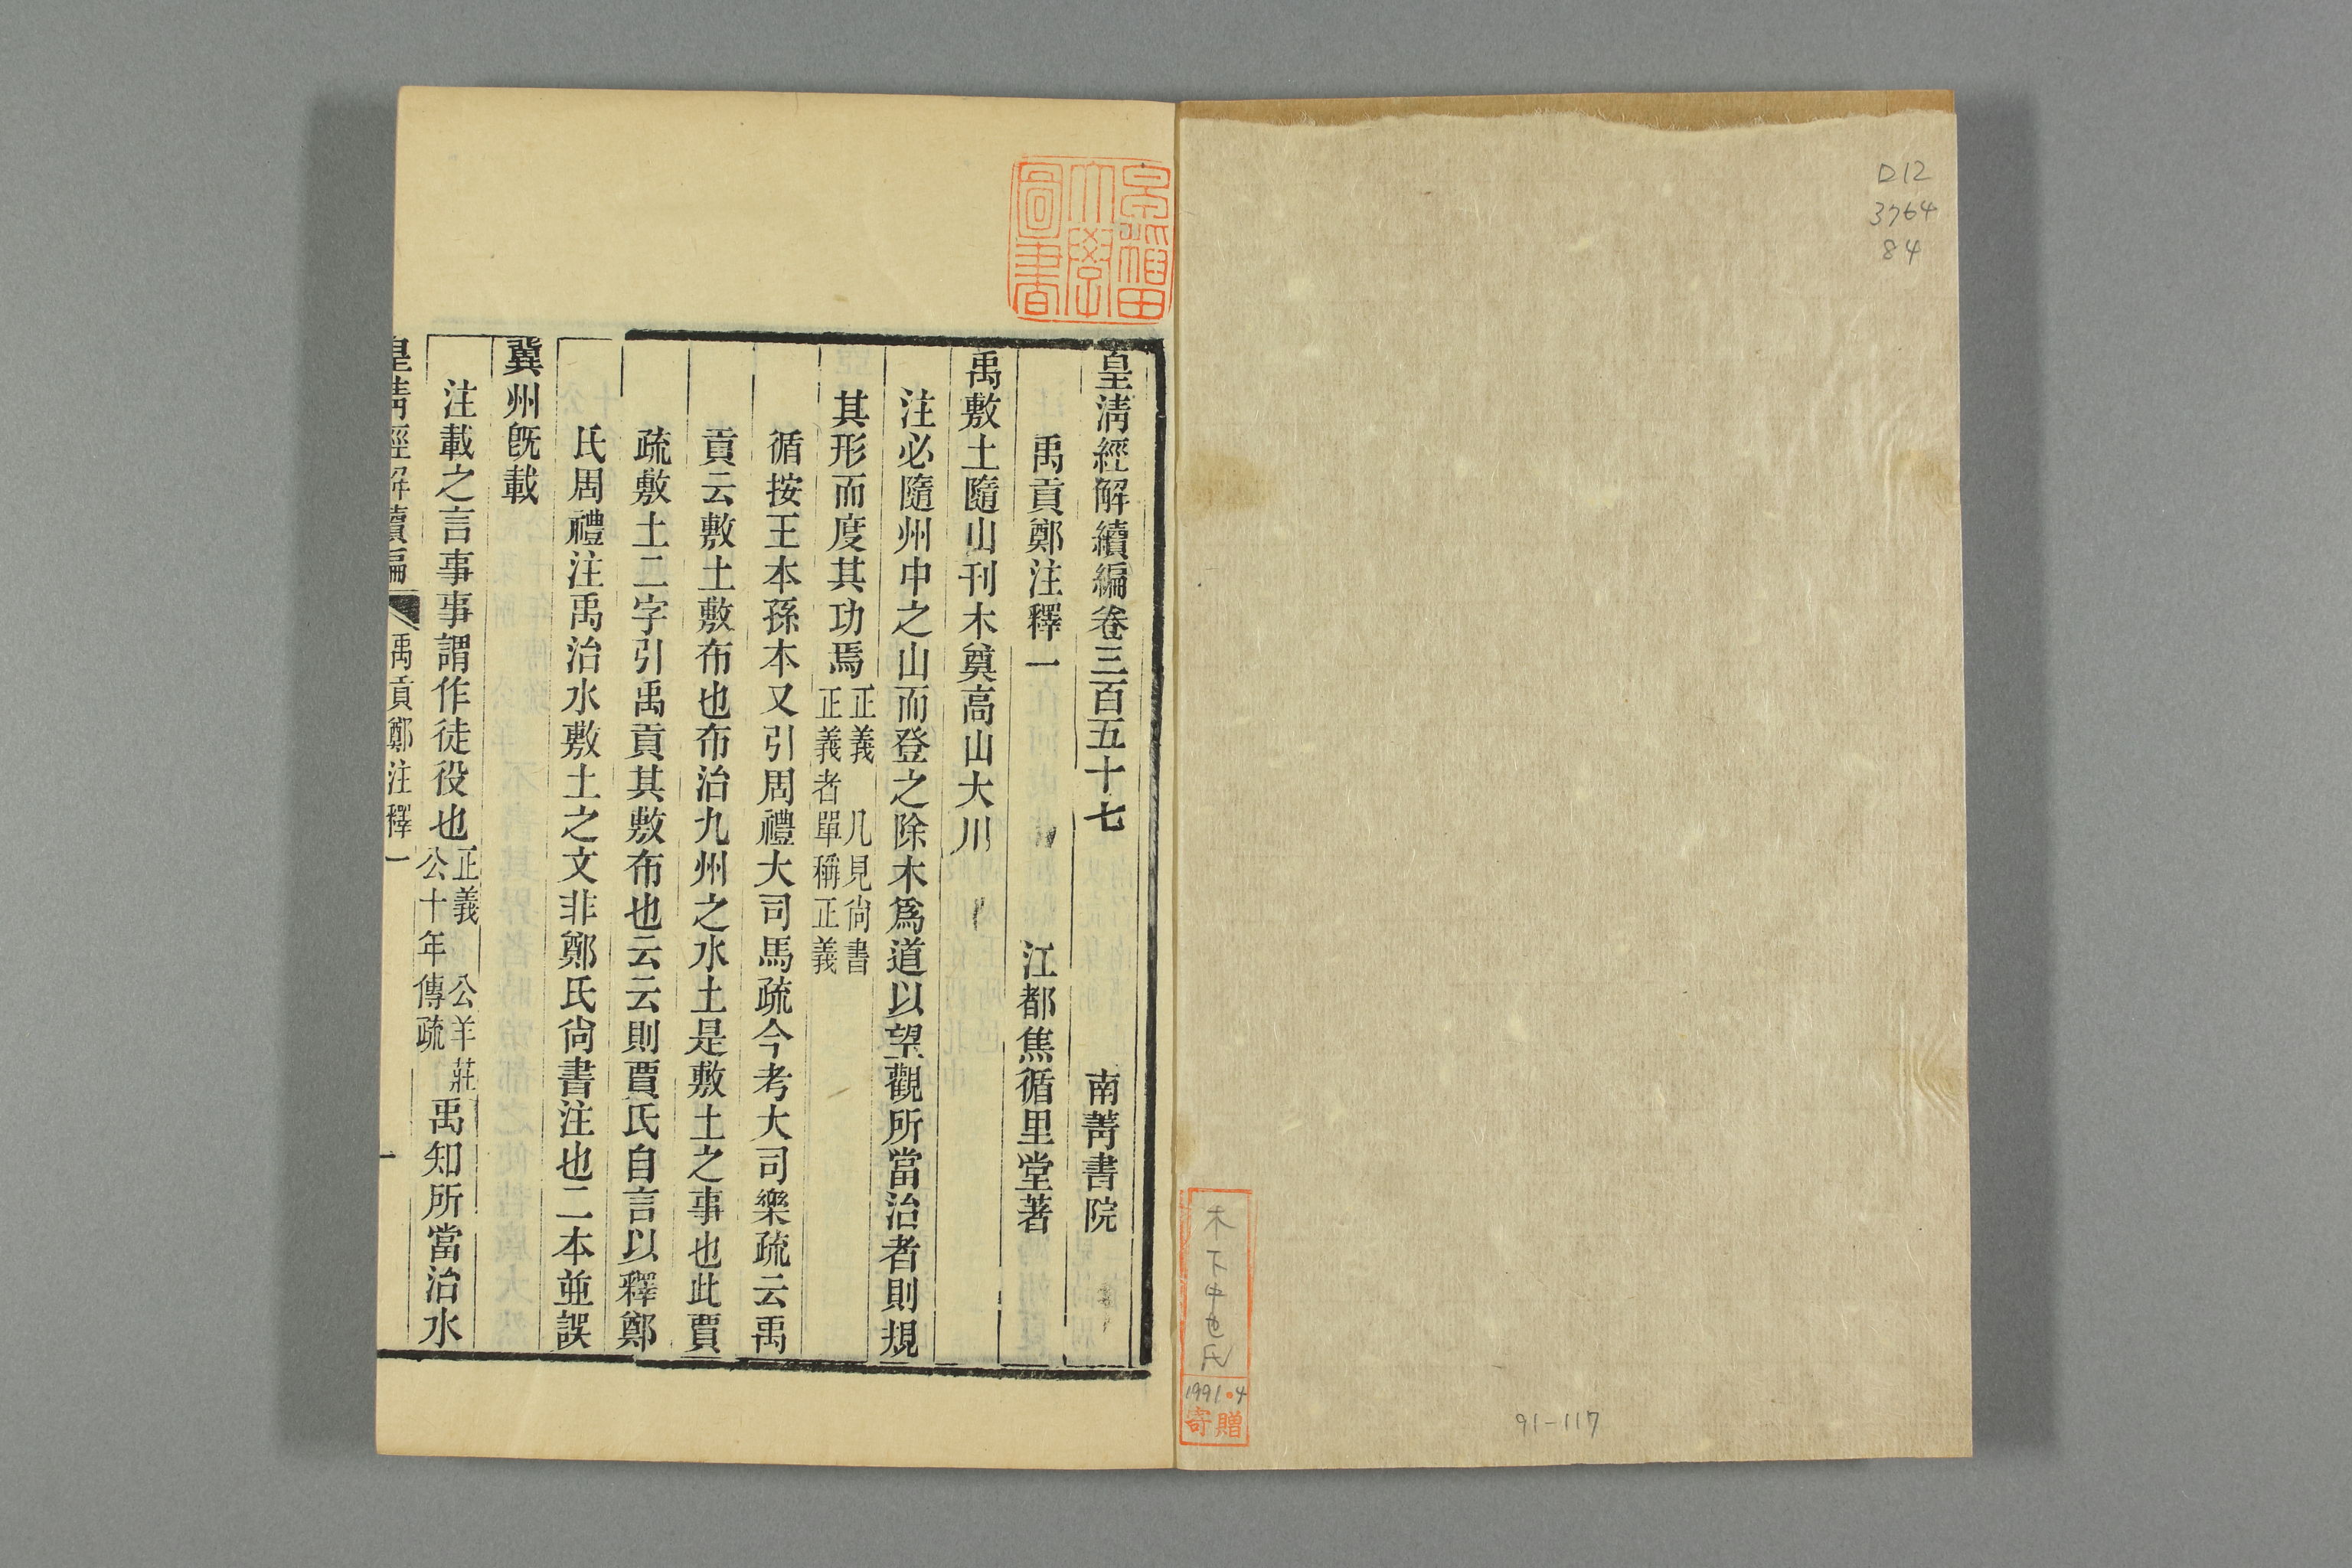 D12
3764
84
木下中也氏
1991.4
寄贈
91-117
早稲田大學圖書
皇清經解續編卷三百五十七 南菁書院
禹貢鄭注釋一 江都焦循里堂著
禹敷土隨山刊木奠高山大川
注必隨州中之山而登之除木爲道以望觀所當治者則規
其形而度其功焉正義 凡見尙書正義者單稱正義
循按王本孫本又引周禮大司馬疏今考大司樂疏云禹
貢云敷土敷布也布治九州之水土是敷土之事也此賈
疏敷土二字引禹貢其敷布也云云則賈氏自言以釋鄭
氏周禮注禹治水敷土之文非鄭氏尙書注也二本並誤
冀州旣載
注載之言事事謂作徒役也正義 公羊莊公十年傳疏禹知所當治水
皇清經解續編 禹貢鄭注釋一 一